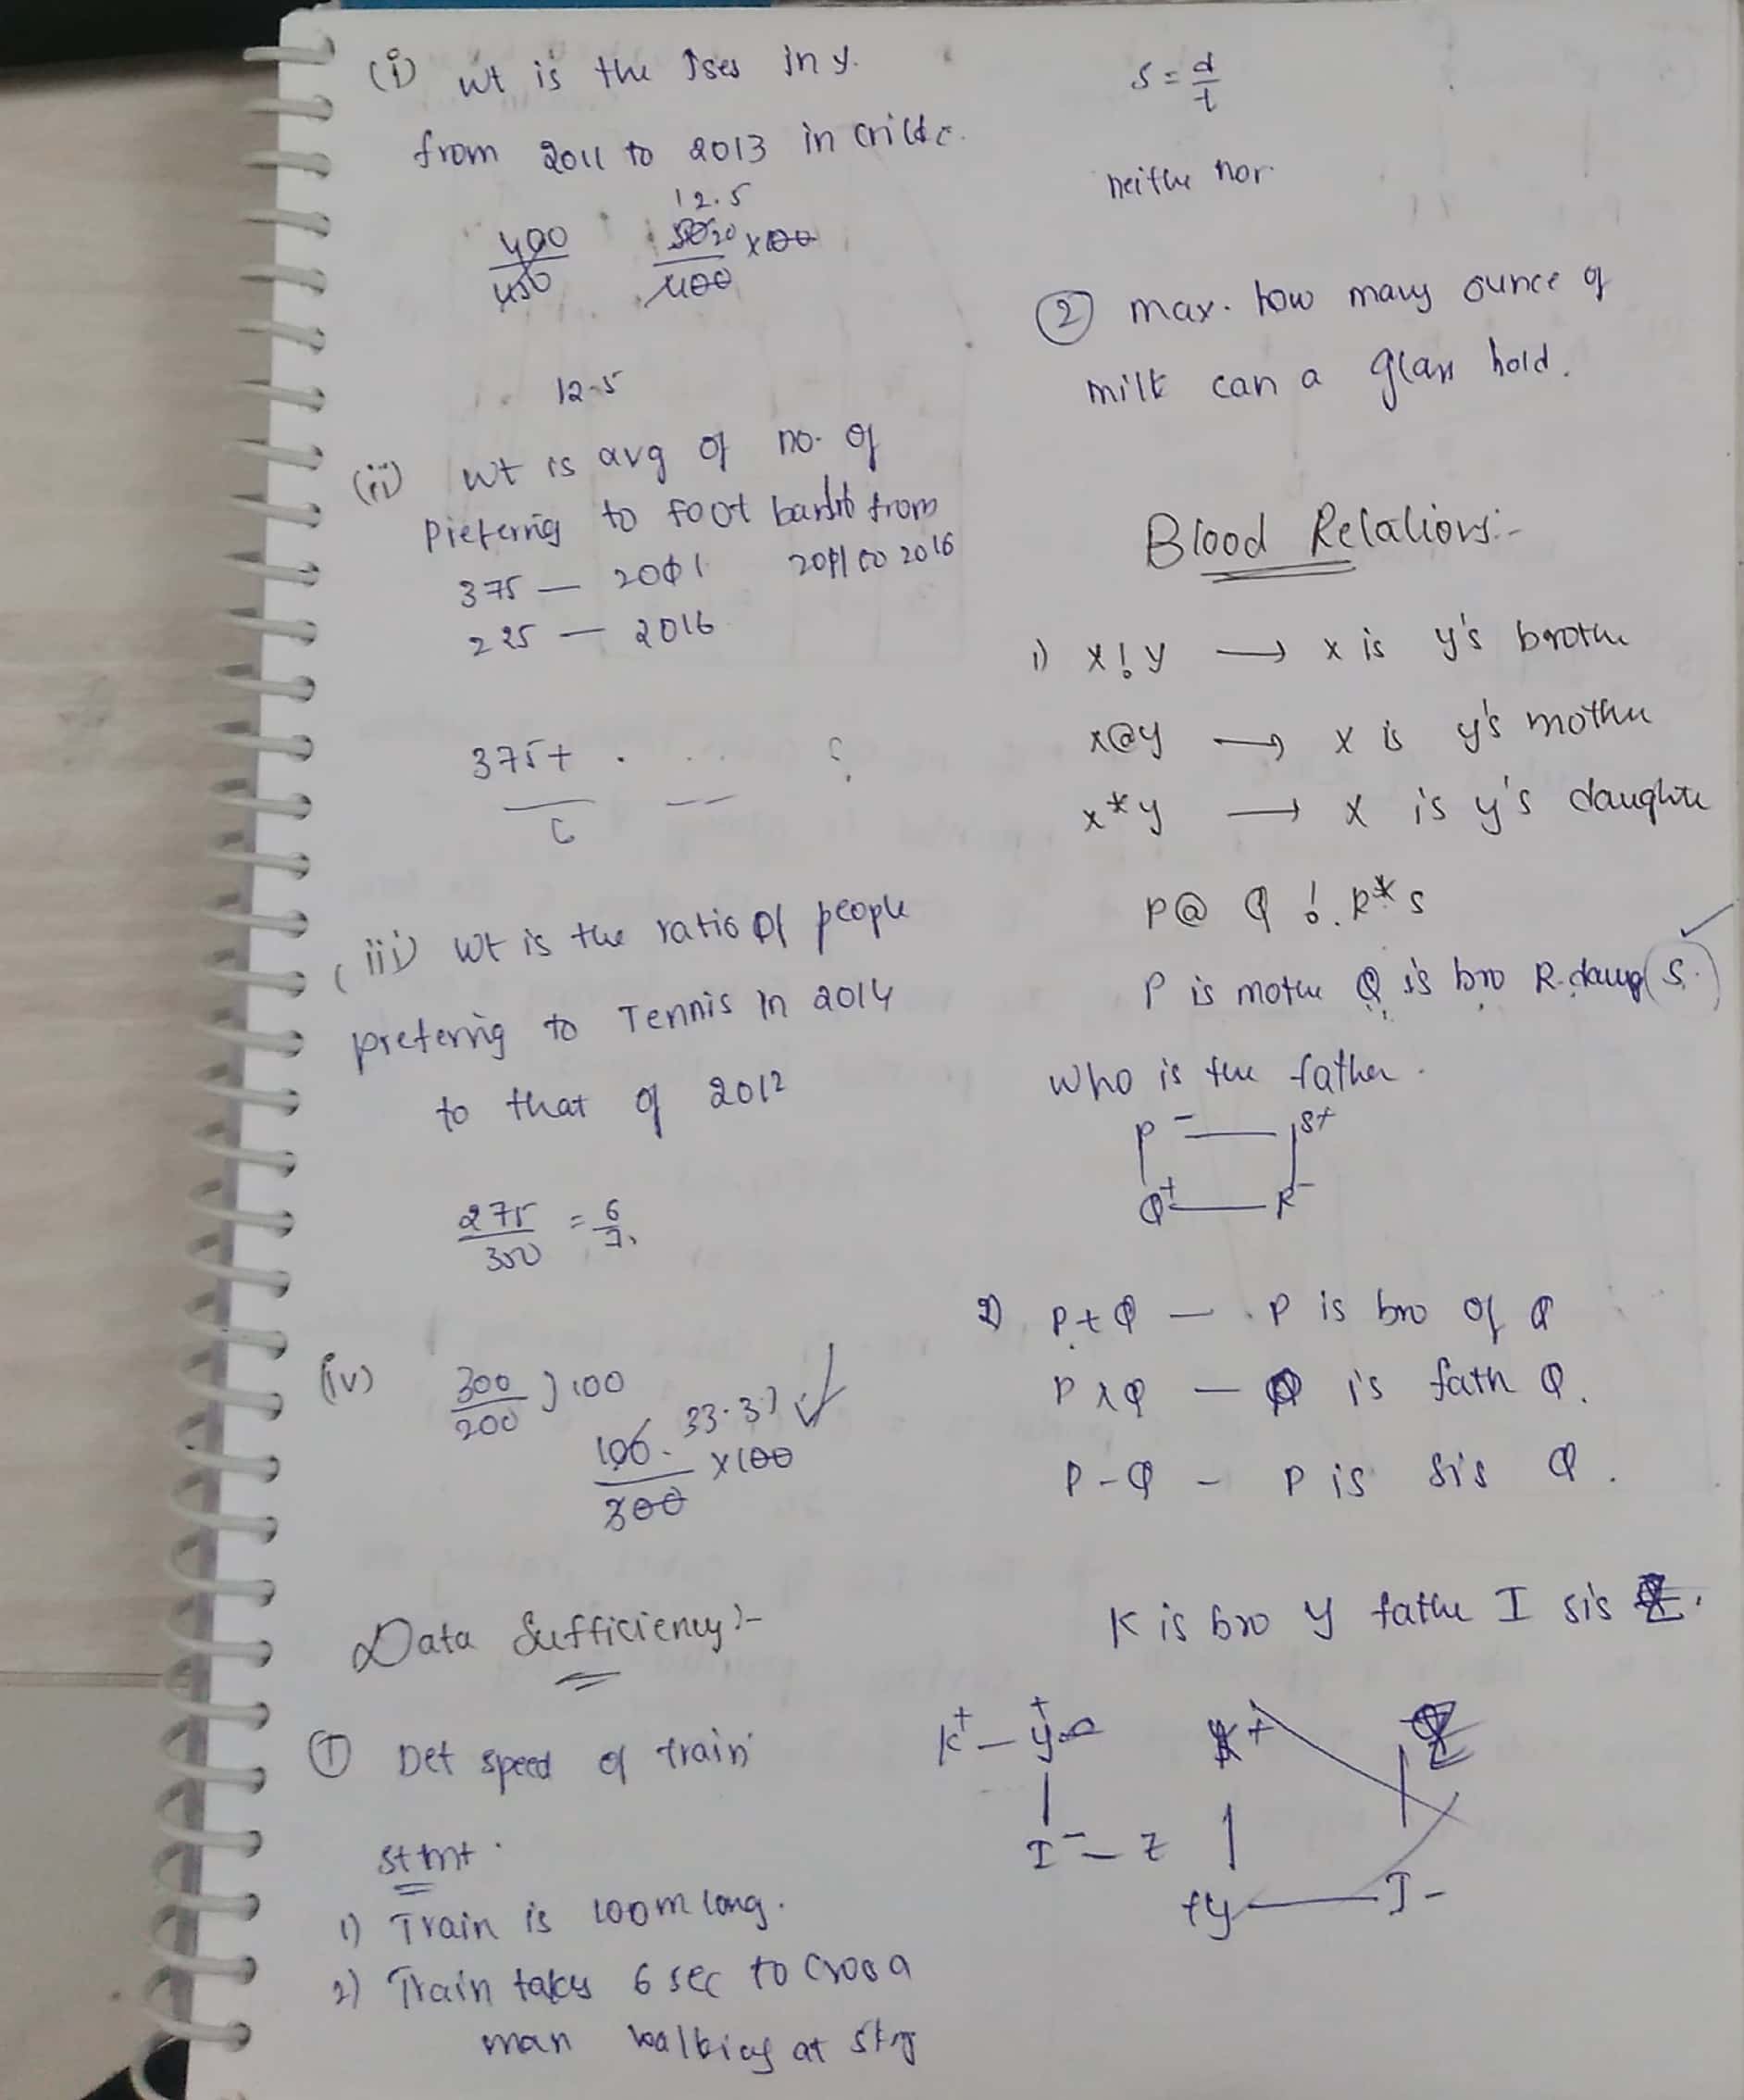 (i) wt is the ses in y.
from 2011 to 2013 in
12.5
400
450
50 20 x 100
400
12.5
(ii) wt is avg of no. of
Preferrig to foot from
375 — 2001 2011 to 2016
225 — 2016
375+ . . . . ?
6
(iii) wt is the ratio of people
preferrig to Tennis in 2014
to that of 2012
275 = 6
350 7.
(iv) 300 ) 100
200
100. 33.3) ✓
x 100
300
Data Sufficiency :-
① Det speed of train
stmt.
1) Train is 100m long.
2) Train takes 6 sec to cross a
man walking at
s = d
t
neithe nor
② max. how many ounce of
milk can a glass hold.
Blood Relations :-
1) x ! y → x is y's brothe
x@y → x is y's mothe
x*y → x is y's daughte
P@ Q ! R* S
P is mothe Q is bro R. daug S. ✓
who is the father.
P - S+
Q+ R -
2) P + Q — P is bro of Q
P x Q — is fath Q.
P - Q - P is sis Q.
K is bro y fathe I sis
K+ — y+
I - — z
+
+y I -